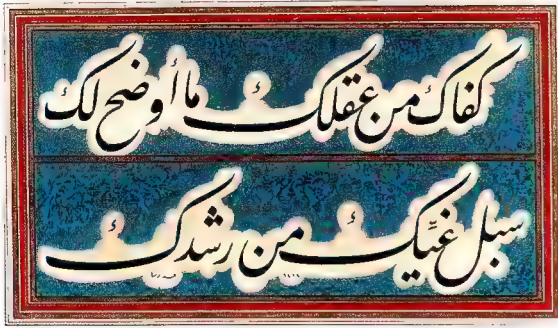 كفاك من عقلك ما أوضح لك
سبل غيّك من رشدك